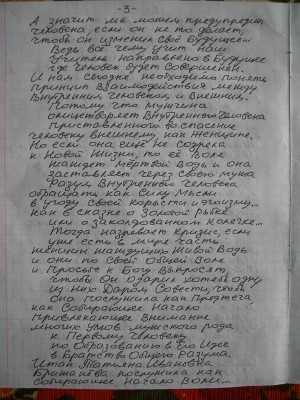 -3-
А значит мы можем предупредить
человека, если он не то делает,
чтобы он изменил своё будущее...
Ведь всё чему учит наш
Учитель направлено в Будущее
где Человек будет Совершенен,
И нам сегодня необходимо понять
принцип Взаимодействия между
Внутренним человеком и Внешним.
Потому что мужчина
олицетворяет Внутреннего Человека
приставленного во спасение
человеку внешнему как женщине.
Но если она ещё не созрела
к Новой Жизни, то её Воля
жаждет мёртвой Воды и она
заставляет через своего мужа
Разум Внутреннего Человека
обращать как Силу Мысли
в угоду своей Корысти и эгоизму...
как в сказке о Золотой Рыбке
или о заколдованном Колечке...
Тогда назревает кризис, если
уже есть в мире части
женщин жаждущие Живой Воды
и они по Своей Общей Воле
и Просьбе к Богу Выпросят,
чтобы Он одарил хотя бы одну
из них Даром Совести, чтоб
она послужила как Предтеча
как Собирающее Начало
Привлекающее Внимание
многих умов мужского рода
к Первому Человеку
по Образованию в Его Идее
в Братство Общего Разума.
Итак Татьяна Ивановна
послужила как
Собирающее Начало Воли...